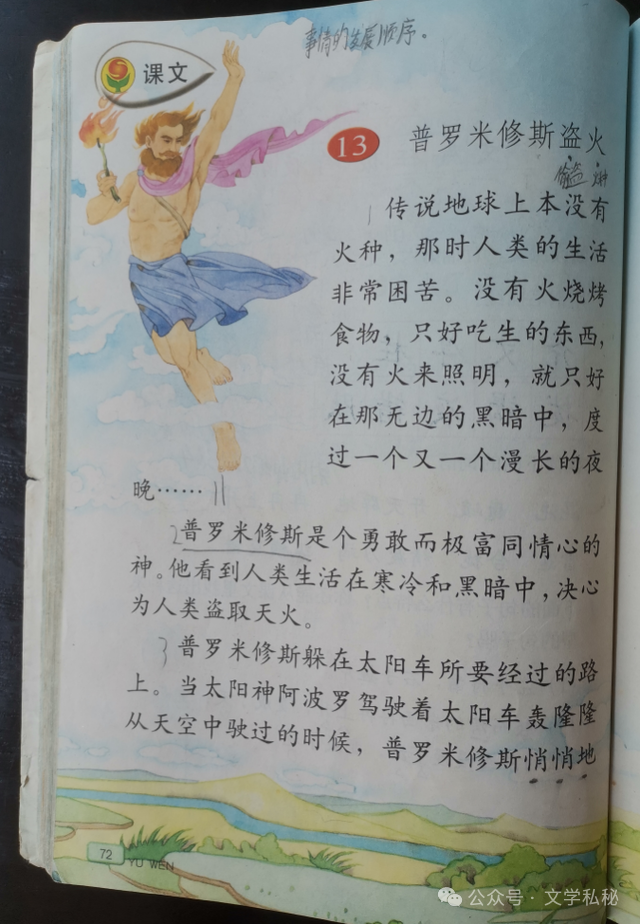 事情的发展顺序。
课文
13 普罗米修斯盗火
偷盗
1 传说地球上本没有
火种，那时人类的生活
非常困苦。没有火烧烤
食物，只好吃生的东西，
没有火来照明，就只好
在那无边的黑暗中，度
过一个又一个漫长的夜
晚…… ||
2 普罗米修斯是个勇敢而极富同情心的
神。他看到人类生活在寒冷和黑暗中，决心
为人类盗取天火。
3 普罗米修斯躲在太阳车所要经过的路
上。当太阳神阿波罗驾驶着太阳车轰隆隆
从天空中驶过的时候，普罗米修斯悄悄地
72
YU WEN
公众号·文学私秘